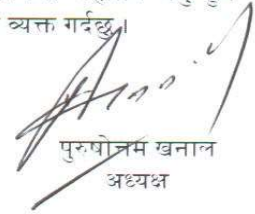 व्यक्त गर्दछु।
पुरुषोत्तम खनाल
अध्यक्ष